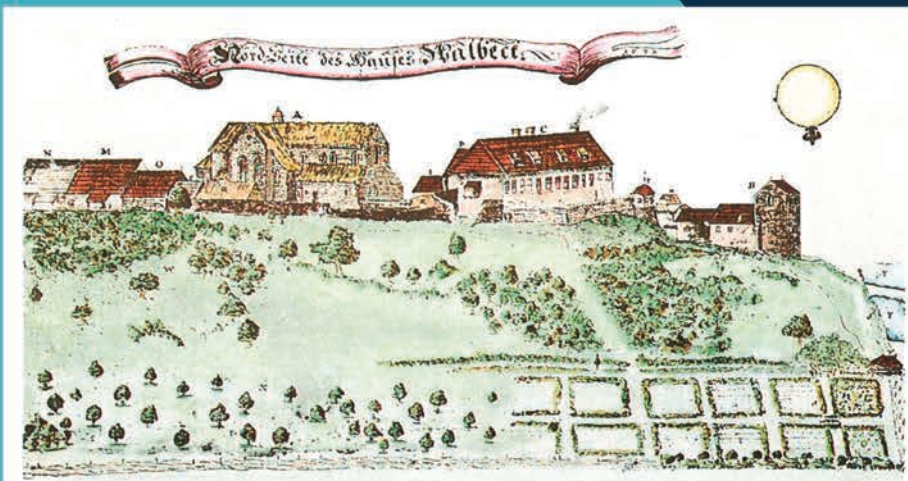 Nord Seite des Hauses Walbeck.
A
C
N M O
B
Y